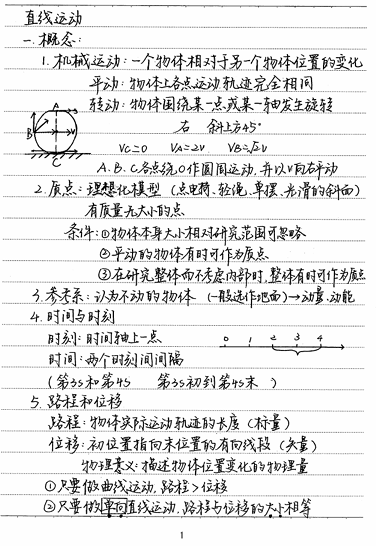 直线运动
一.概念:
1.机械运动:一个物体相对于另一个物体位置的变化
平动:物体上各点运动轨迹完全相同
转动:物体围绕某一点或某一轴发生旋转
A
B
O
V
C
右 斜上方45°
Vc=0 VA=2V VB=√2V
A.B.C各点绕O作圆周运动,并以V向右平动
2.质点:理想化模型(点电荷、轻绳、单摆、光滑的斜面)
有质量无大小的点
条件:①物体本身大小相对研究范围可忽略
②平动的物体有时可作为质点
③在研究整体而不考虑内部时,整体有时可作为质点
3.参考系:认为不动的物体(一般选作地面)→动量.动能
4.时间与时刻
时刻:时间轴上一点
0 1 2 3 4
时间:两个时刻间间隔
(第3s和第4s 第3s初到第4s末 )
5.路程和位移
路程:物体实际运动轨迹的长度(标量)
位移:初位置指向末位置的有向线段(矢量)
物理意义:描述物体位置变化的物理量
①只要做曲线运动,路程>位移
②只要做单向直线运动,路程与位移的大小相等
1